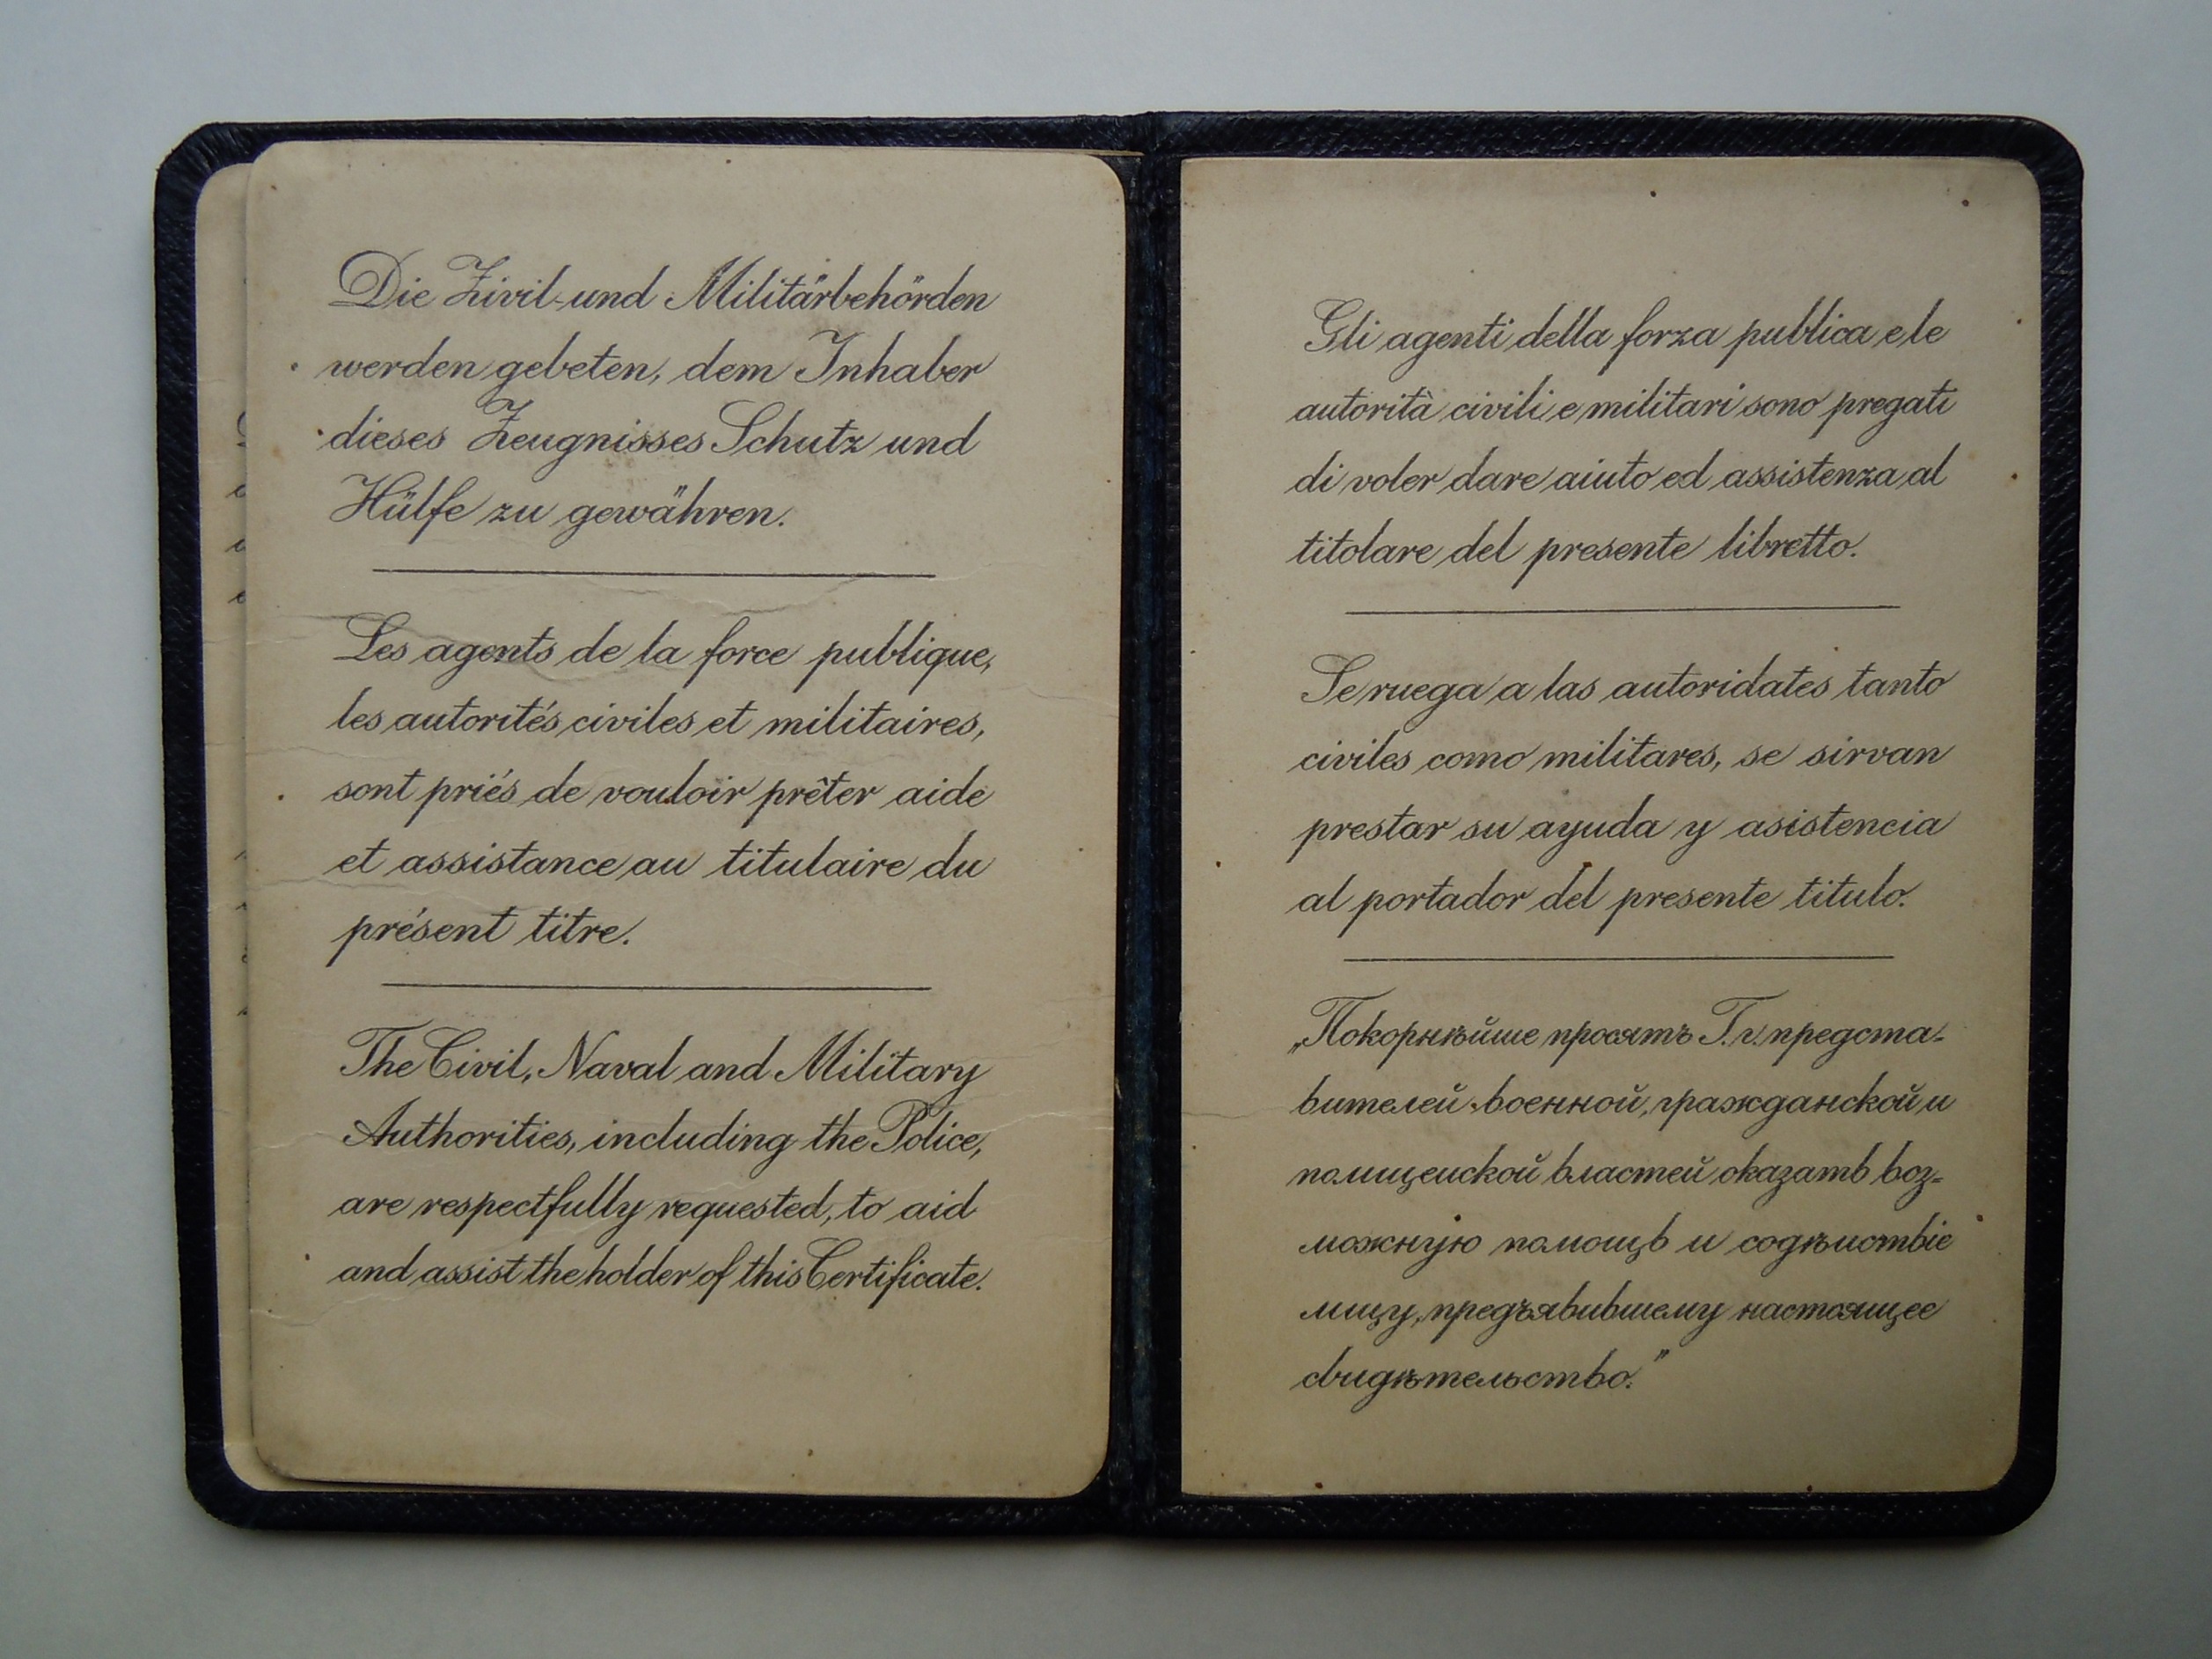 Die Zivil- und Militärbehörden
werden gebeten, dem Inhaber
dieses Zeugnisses Schutz und
Hülfe zu gewähren.
Les agents de la force publique,
les autorités civiles et militaires,
sont priés de vouloir prêter aide
et assistance au titulaire du
présent titre.
The Civil, Naval and Military
Authorities, including the Police,
are respectfully requested, to aid
and assist the holder of this Certificate.
Gli agenti della forza publica e le
autorità civili e militari sono pregati
di voler dare aiuto ed assistenza al
titolare del presente libretto.
Se ruega a las autoridates tanto
civiles como militares, se sirvan
prestar su ayuda y asistencia
al portador del presente titulo.
„Покорнѣйше просятъ Г. г. предста-
вителей военной, гражданской и
полицейской властей оказать воз-
можную помощь и содѣйствіе
лицу, предъявившему настоящее
свидѣтельство."